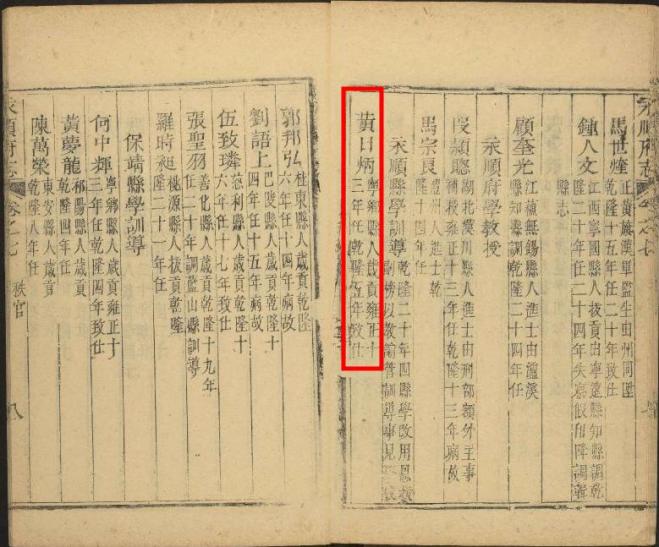 永順府志
馬世煃 正黃旂漢軍監生由州同陞
乾隆十五年任二十年致仕
鍾人文 江西寧國縣人拔貢由寧遠縣知縣調乾
隆二十年任二十四年失察
縣志
顧奎光 江蘇無錫縣人進士由瀘溪
縣知縣調乾隆二十四年任
永順府學教授
段巘聰 湖北漢川縣人進士由刑部額外主事
補授雍正十三年任乾隆十三年病故
馬宗良 澧州人進士乾
隆十四年任
永順縣學訓導 乾隆二十年四縣學改用
副榜以教諭管訓導事見
黄日炳 寧鄉縣人歲貢雍正十
三年任乾隆五年致仕
郭邦弘 杜東縣人歲貢乾隆
六年任十四年病故
劉語上 巴陵縣人歲貢乾隆十
四年任十五年病故
伍致璘 慈利縣人歲貢乾隆十
六年任十七年致仕
張聖羽 善化縣人歲貢乾隆十九年
任二十年調藍山縣訓導
羅時昶 桃源縣人拔貢乾隆
二十一年任
保靖縣學訓導
何中輝 寧鄉縣人歲貢雍正十
三年任乾隆四年致仕
黃夢龍 祁陽縣人歲貢
乾隆四年任
陳萬榮 東安縣人歲貢
乾隆八年任
永順府志 卷之七 秩官 八